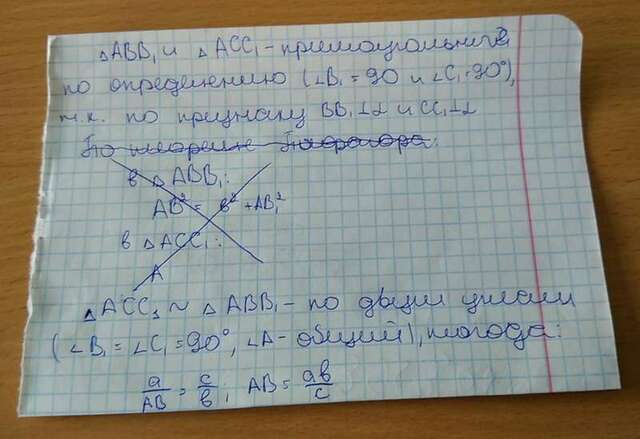 △ABB₁ и △ACC₁ - прямоугольные
по определению (∠B₁ = 90 и ∠C₁ = 90°),
т.к. по признаку BB₁⊥α и CC₁⊥α
По теореме Пифагора:
в △ABB₁:
AB² = в² + AB₁²
в △ACC₁:
A
△ACC₁ ~ △ABB₁ - по двум углам
(∠B₁ = ∠C₁ = 90°, ∠A - общий), тогода:
a/AB = c/в; AB = aв/c